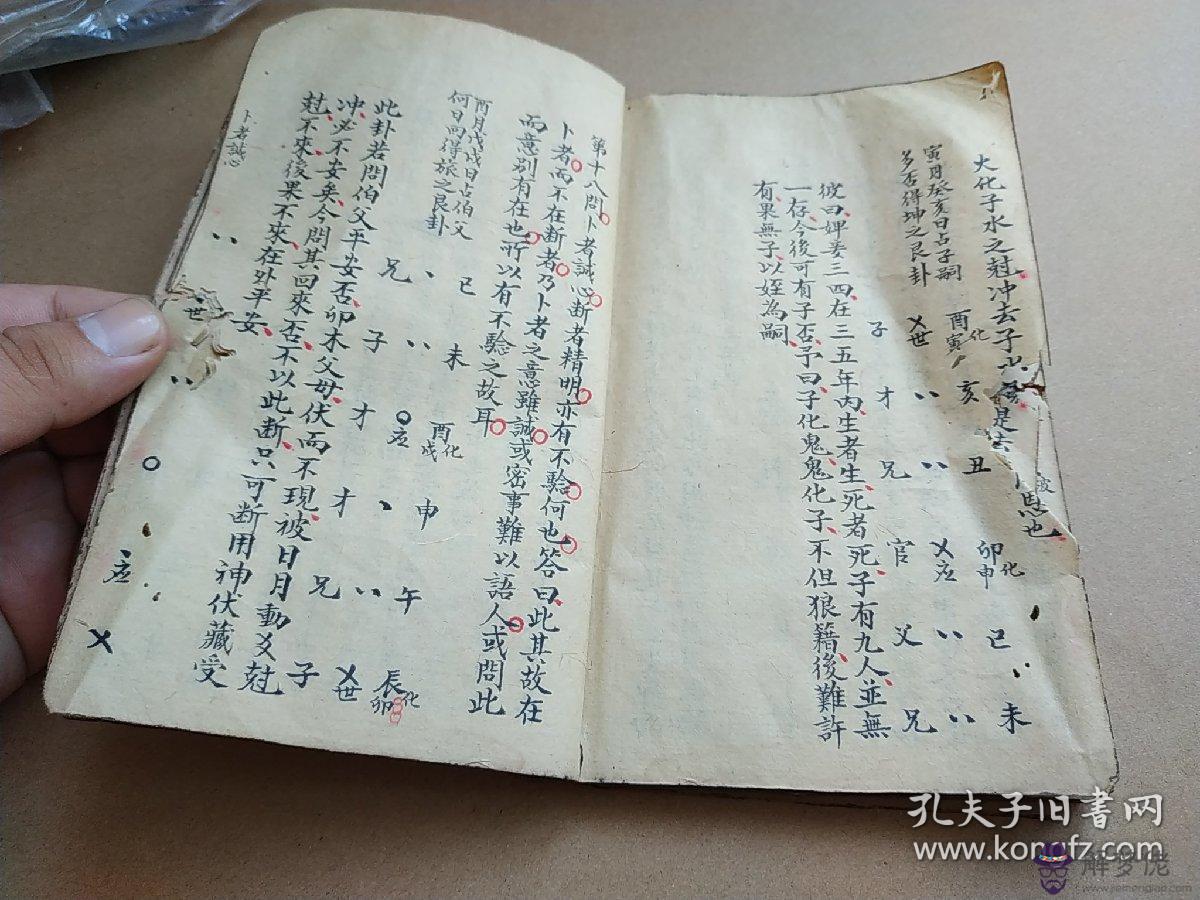 大化子水之尅冲去子水
是去
恩也
寅月癸亥日占子嗣
多否得坤之艮卦
世 化 酉寅
子
亥 才
丑 兄
化 卯申 应 官
巳 父
未 兄
彼曰婢妾三四在三五年内生者生死者死子有九人並無
一存今後可有子否予曰子化鬼鬼化子不但狼籍後難許
有果無子以姪為嗣
第十八問卜者誠心断者精明亦有不驗何也答曰此其故在
卜者而不在断者乃卜者之意雖誠或密事難以語人或問此
而意别有在也所以有不驗之故耳
酉月戊戌日占伯父
何日回得旅之艮卦
巳 兄
未 子
化 酉戌 应 才
申 才
午 兄
化 辰卯 世 子
此卦若問伯父平安否卯木父母伏而不現被日月動爻尅
冲必不安矣今問其回來否不以此断只可断用神伏藏受
尅不來後果不來在外平安
卜者誠心
世
应
孔夫子旧书网
www.kongfz.com
解梦佬
www.jiemenglao.com